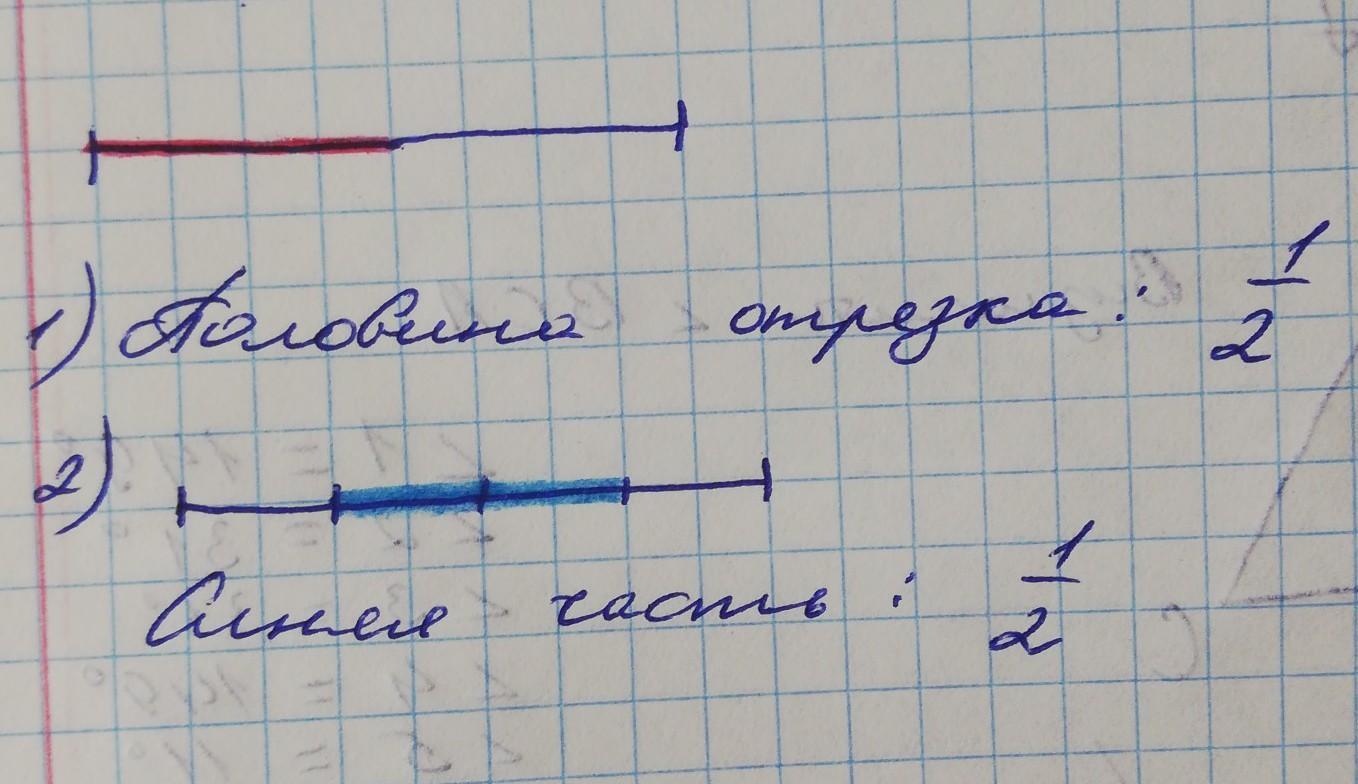 1) Половина отрезка: 1/2
2)
Синяя часть: 1/2